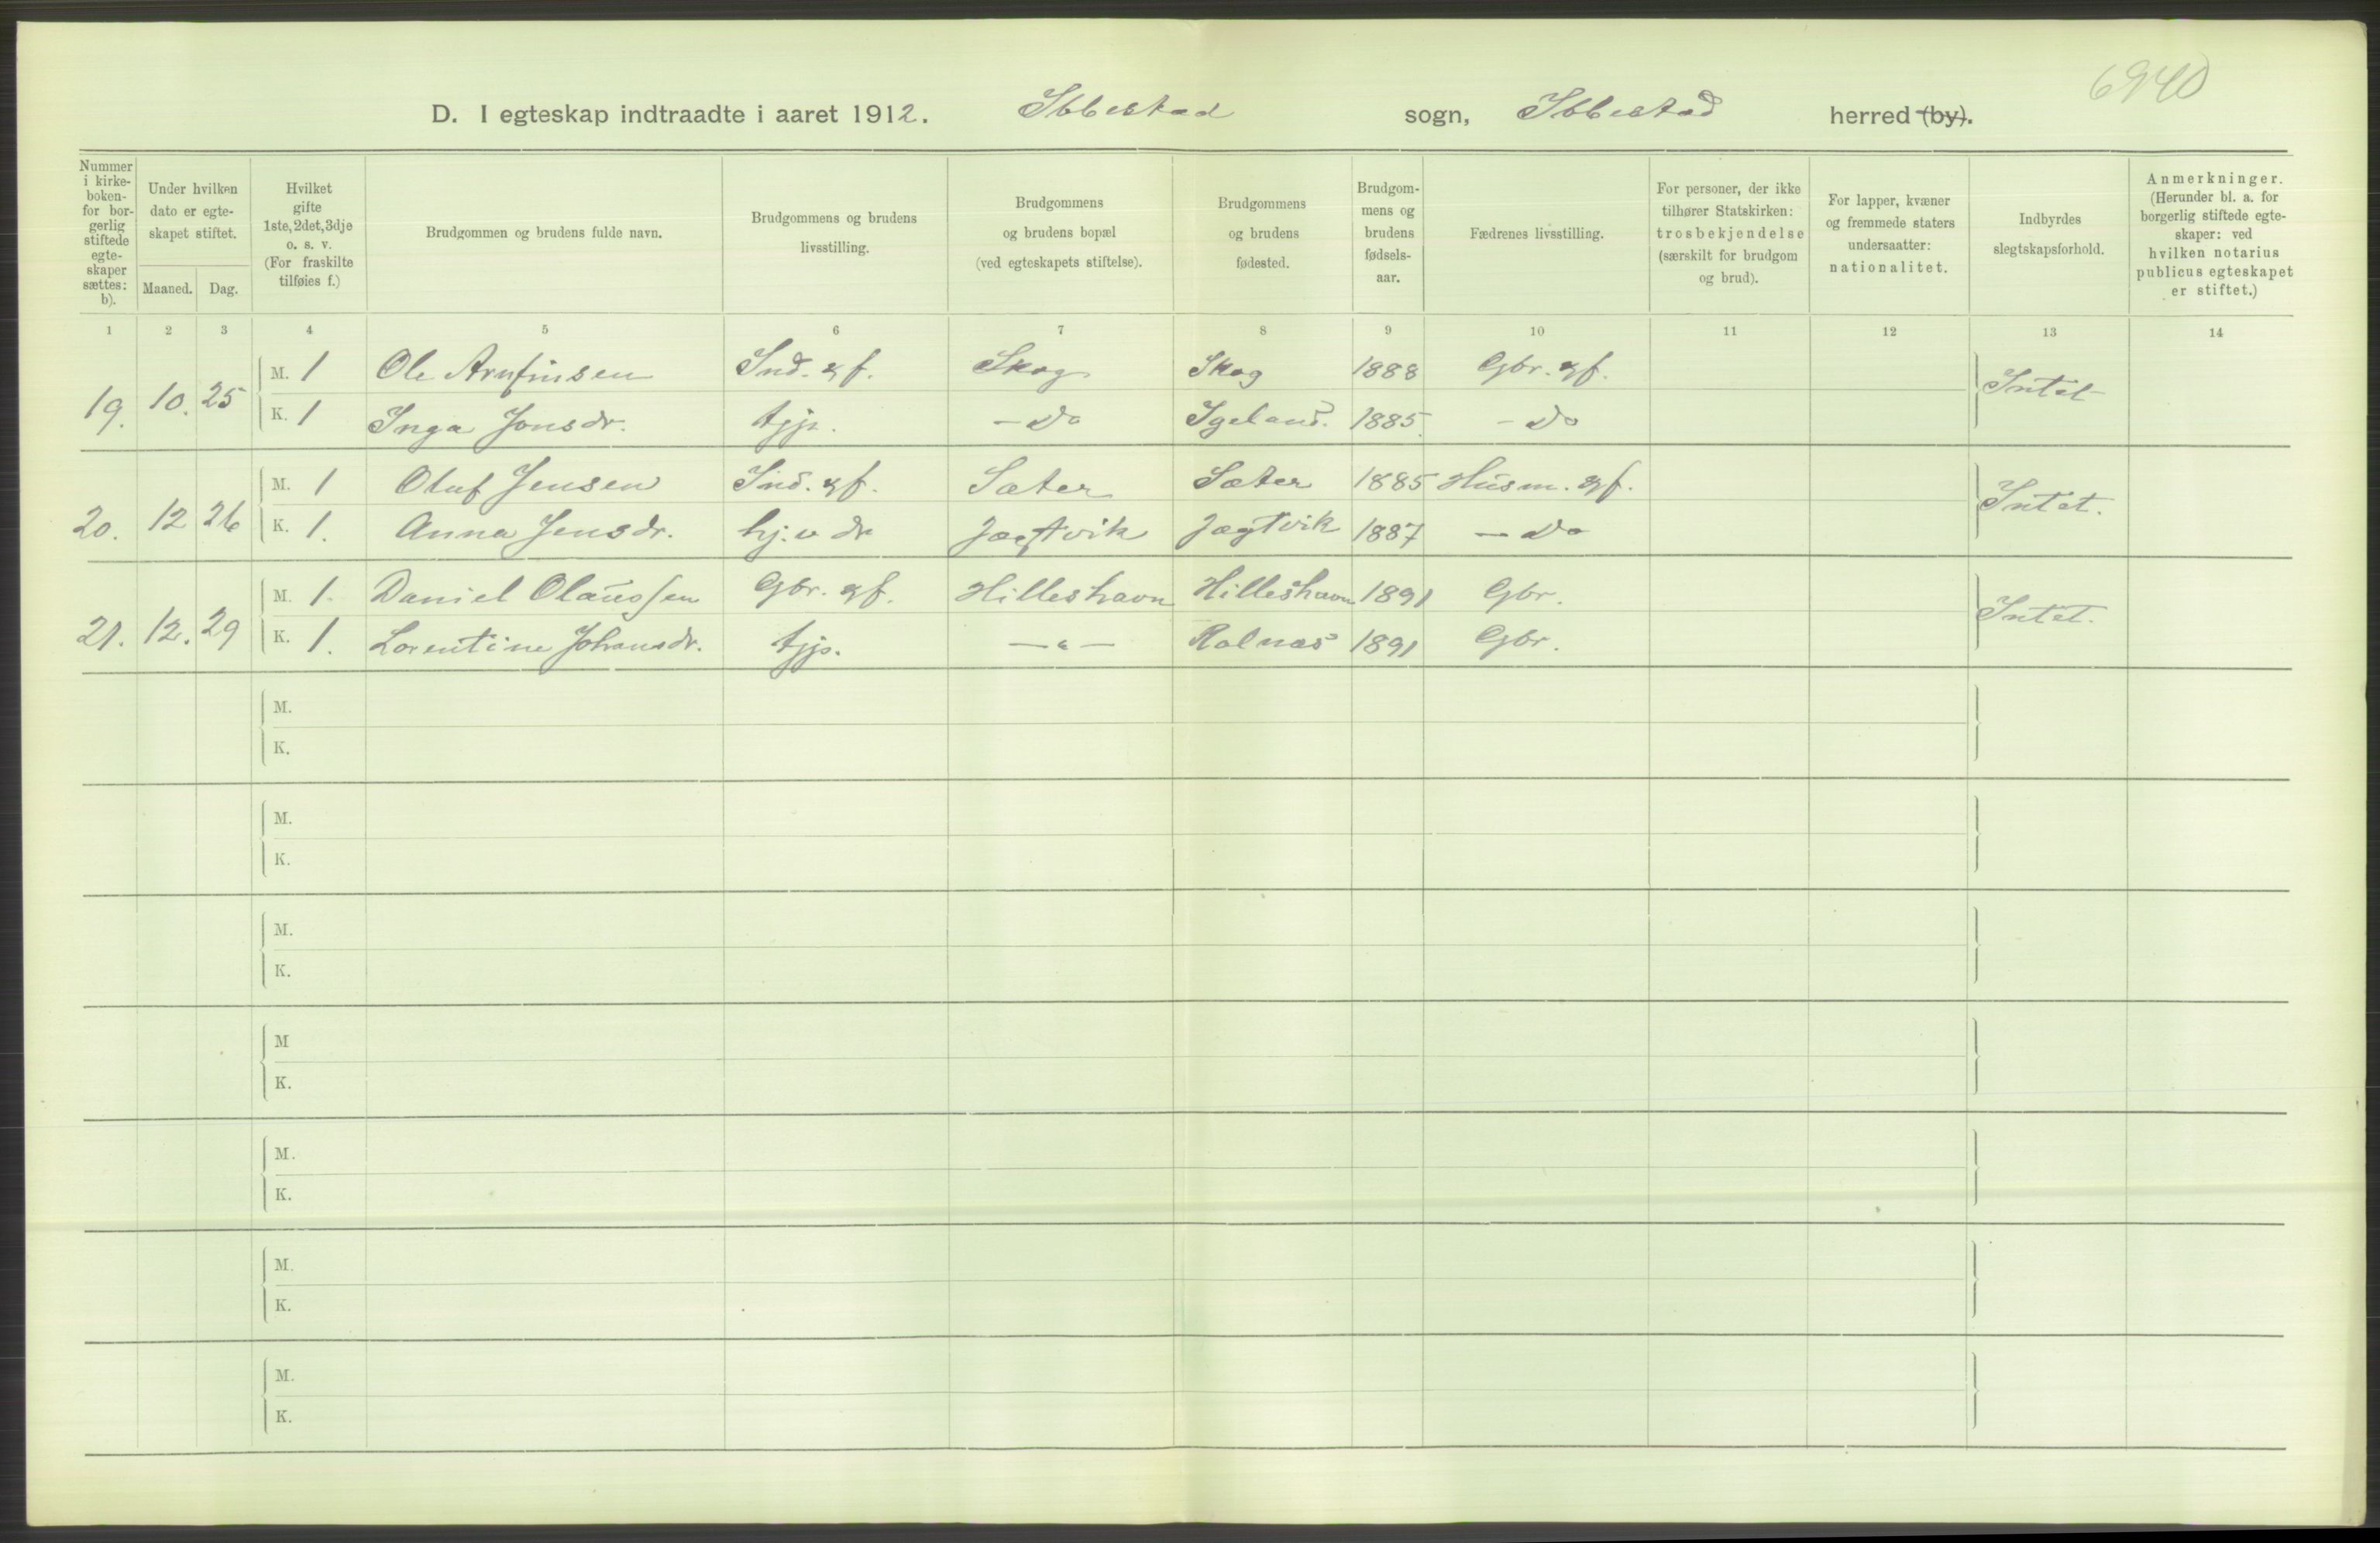 6940
D. I egteskap indtraadte i aaret 1912. Ibbestad sogn, Ibbestad herred (by).
Nummer i kirke-boken- for bor-gerlig stiftede egte-skaper sættes: b).
Under hvilken dato er egte-skapet stiftet.
Maaned. Dag.
Hvilket gifte 1ste, 2det, 3dje o. s. v. (For fraskilte tilføies f.)
Brudgommen og brudens fulde navn.
Brudgommens og brudens livsstilling.
Brudgommens og brudens bopæl (ved egteskapets stiftelse).
Brudgommens og brudens fødested.
Brudgom-mens og brudens fødsels-aar.
Fædrenes livsstilling.
For personer, der ikke tilhører Statskirken: trosbekjendelse (særskilt for brudgom og brud).
For lapper, kvæner og fremmede staters undersaatter: nationalitet.
Indbyrdes slegtskapsforhold.
Anmerkninger. (Herunder bl. a. for borgerlig stiftede egte-skaper: ved hvilken notarius publicus egteskapet er stiftet.)
1 2 3 4 5 6 7 8 9 10 11 12 13 14
19. 10. 25 M. 1 Ole Arnfinsen Ind. & f. Skog Skog 1888 Gbr. & f. Intet
K. 1 Inga Jonsdr. tjp. - Do Igeland. 1885. - Do
20. 12 26 M. 1 Oluf Jensen Ind. & f. Sæter Sæter 1885 Husm. & f. Intet.
K. 1. Anna Jensdr. hj. v dr Jægtvik Jægtvik 1887 - Do
21. 12. 29 M. 1. Daniel Olaussen Gbr. & f. Hilleshavn Hilleshavn 1891 Gbr. Intet.
K. 1. Lorentine Johansdr. tjp. — " — Rolnæs 1891 Gbr.
M.
K.
M.
K.
M.
K.
M
K.
M.
K.
M.
K.
M.
K.